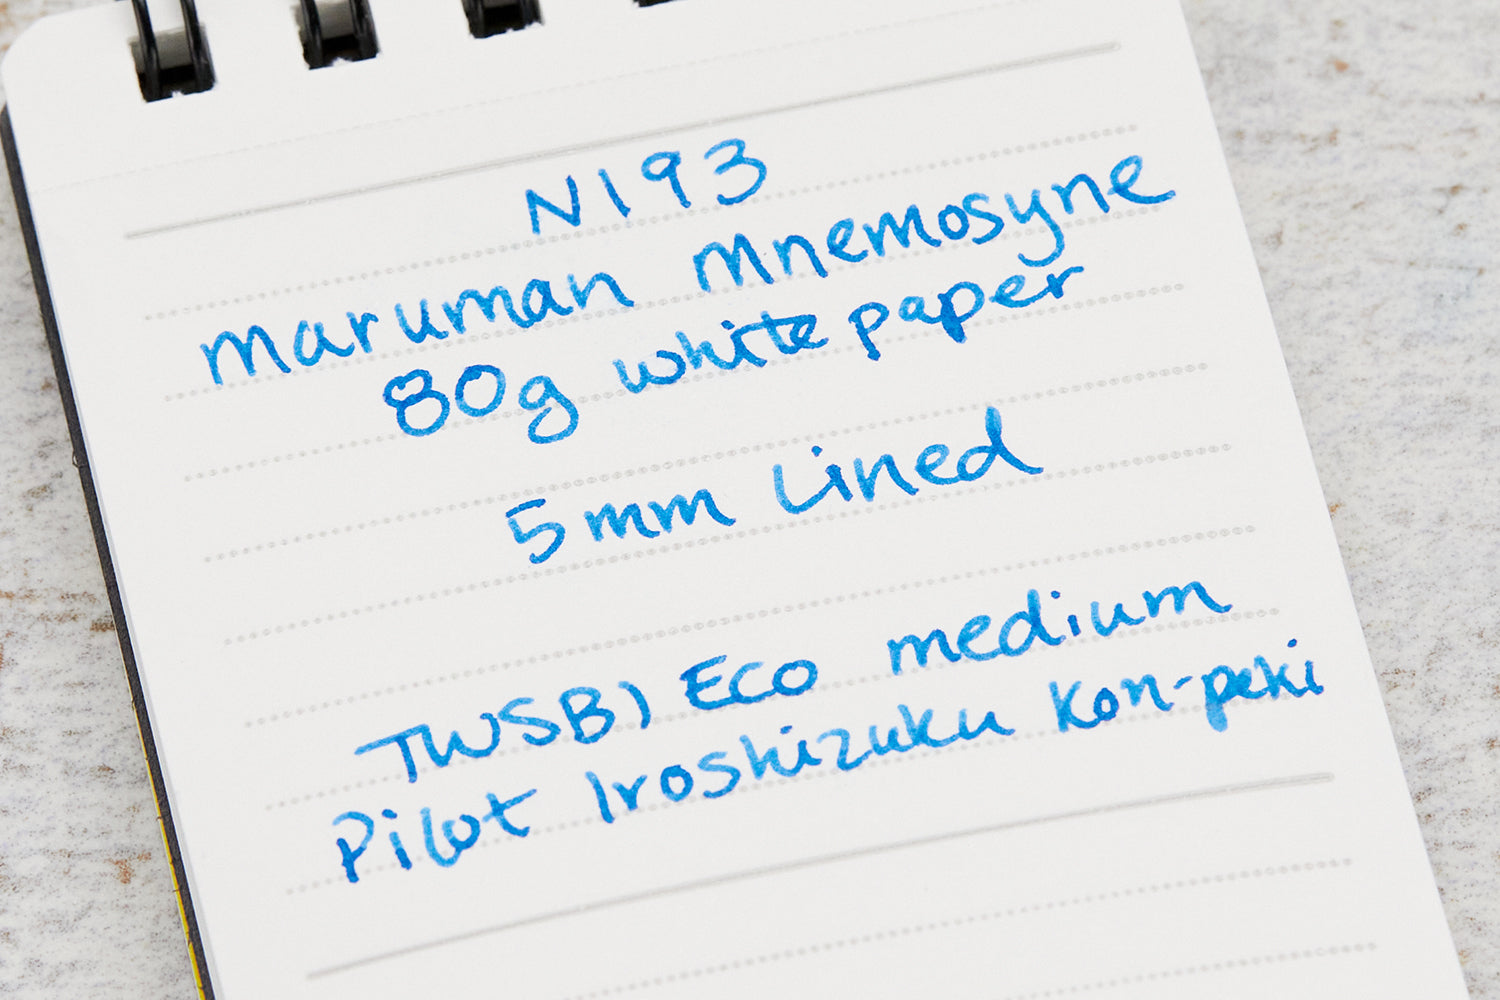 N193
Maruman Mnemosyne
80g white paper
5mm Lined
TWSBI Eco medium
Pilot Iroshizuku Kon-peki